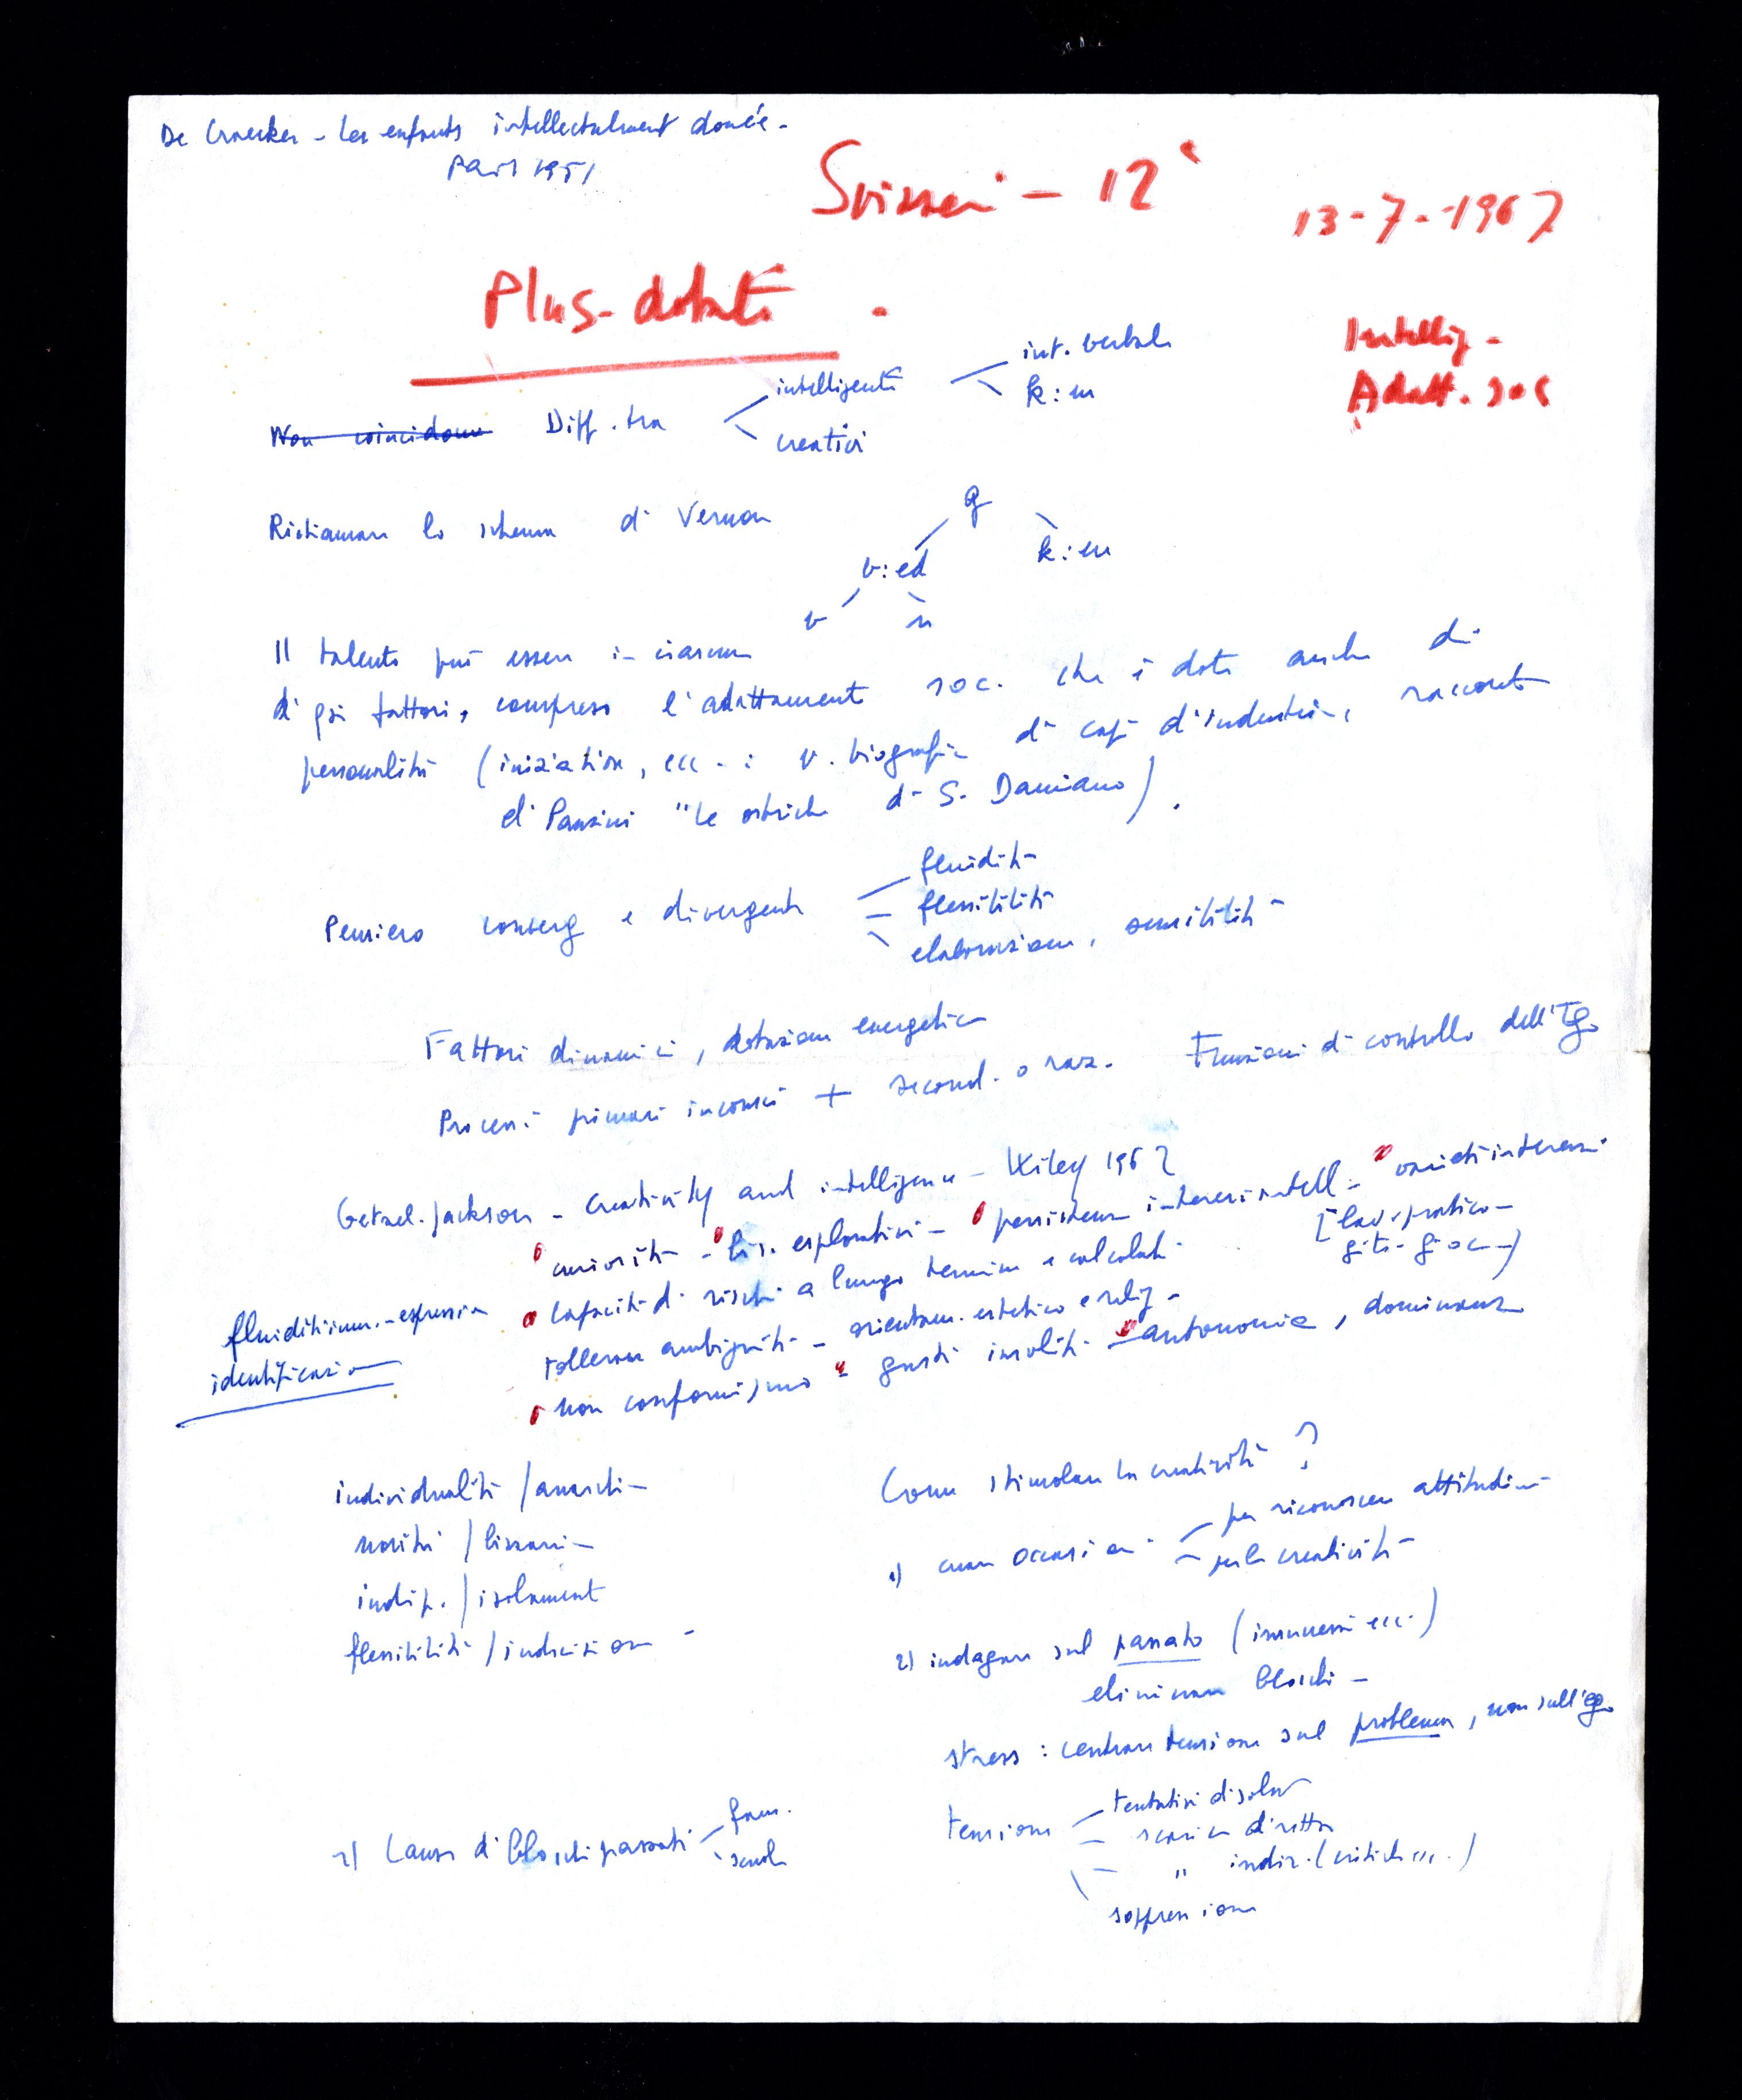 De Craecker - Les enfants intellectuelment douée -
Paris 1951
Svizzeri - 12
13-7-1967
Plus-dotati .
Intellig -
Adatt. soc
Non coincidono Diff. tra
intelligenti
int. verbale
k:m
creativi
Richiamare lo schema di Vernon
g
v:ed
k:m
v
n
Il talento può essere in ciascun
di qsi fattori, compreso l'adattamento soc. che è dato anche di
personalità (iniziativa, ecc. : v. biografie di capi d'industria, racconto
di Panzini "Le ostriche di S. Damiano) .
Pensiero converg e divergente
fluidità
flessibilità
elaborazione, sensibilità
Fattori dinamici, dotazione energetica
Processi primari inconsci + second. o raz. Funzioni di controllo dell'Ego
Getzel. Jackson - Creativity and intelligence - Wiley 1962
curiosità - bis. esplorativi - persistenza interessi intell - varietà interessi
[lav. pratico -
gite - gioc -)
capacità di rischi a lungo termine e calcolati
fluidità - espressiva
identificazio
Tolleranza ambiguità - orientam. estetico e relig -
non conformismo - gusti insoliti - autonomia, dominanza
individualità / anarchi-
novità / bizzarri-
indip. / isolament
flessibilità / indecisione -
Come stimolare la creatività ?
1) creare occasioni
per riconoscere attitudini
per la creatività
2) indagare sul passato (insuccessi ecc.)
eliminare blocchi -
stress : centrare tensione sul problema, non sull'ego
2) Cause di blocchi passati
fam.
scuola
tensione
tentativi di soluz
scarica diretta
" indir. (critiche ecc.)
soppressione